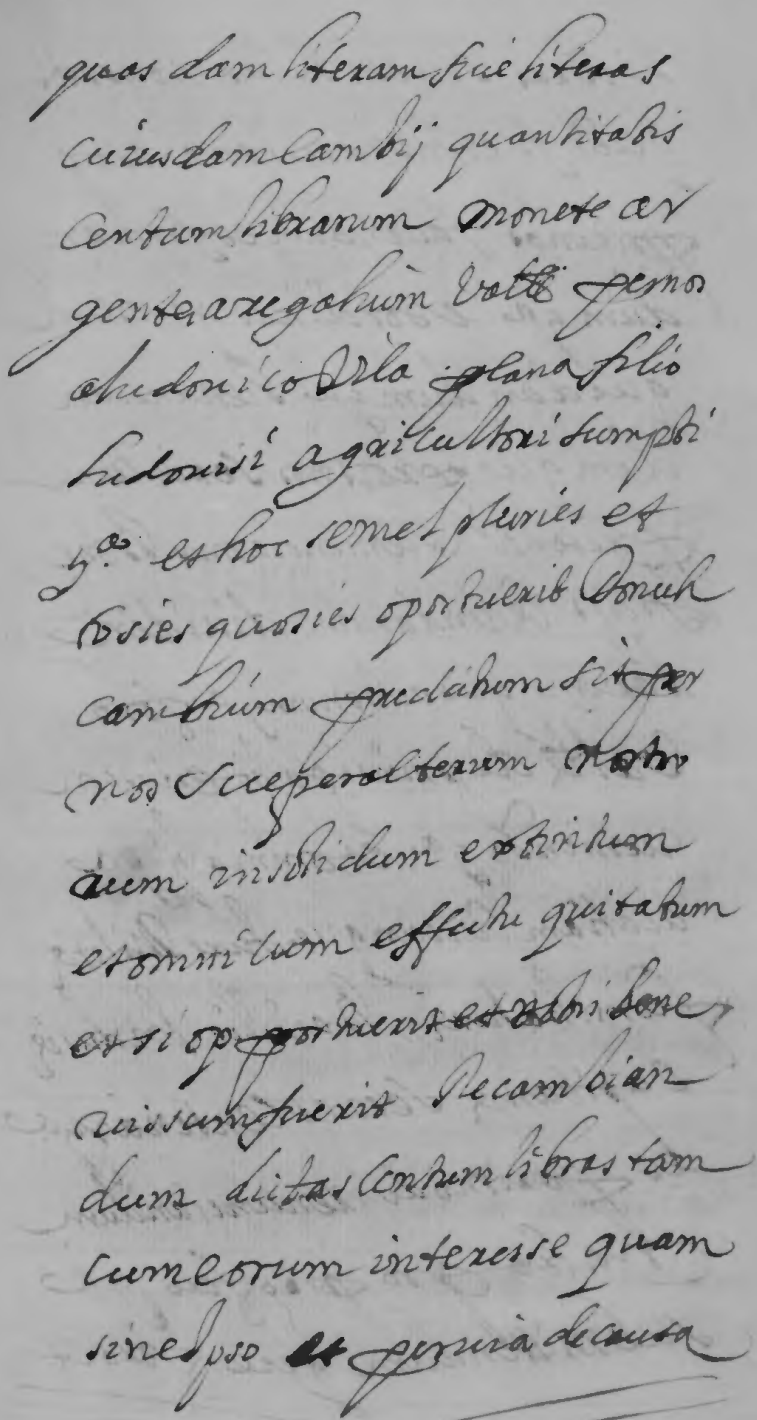 quas dam literam sive literas
cuiusdam Cambij quantitatis
Centum librarum monete ar
gentea regalium Vallᵉ per nos
a ludovico Vila plana filio
Ludovisi agricultori sumpti
ȝᵃ et hoc semel pluries et
tosies quosies oportuerit Donech
cambium predictum sit per
nos sive per alterum nostr
rum insolidum extintum
et omni cum effectu quitatum
et si op portuerit et nobis bene
vissum fuerit Recambian
dum dictas Centum libras tam
cum eorum interesse quam
sine ipso et per via de causa